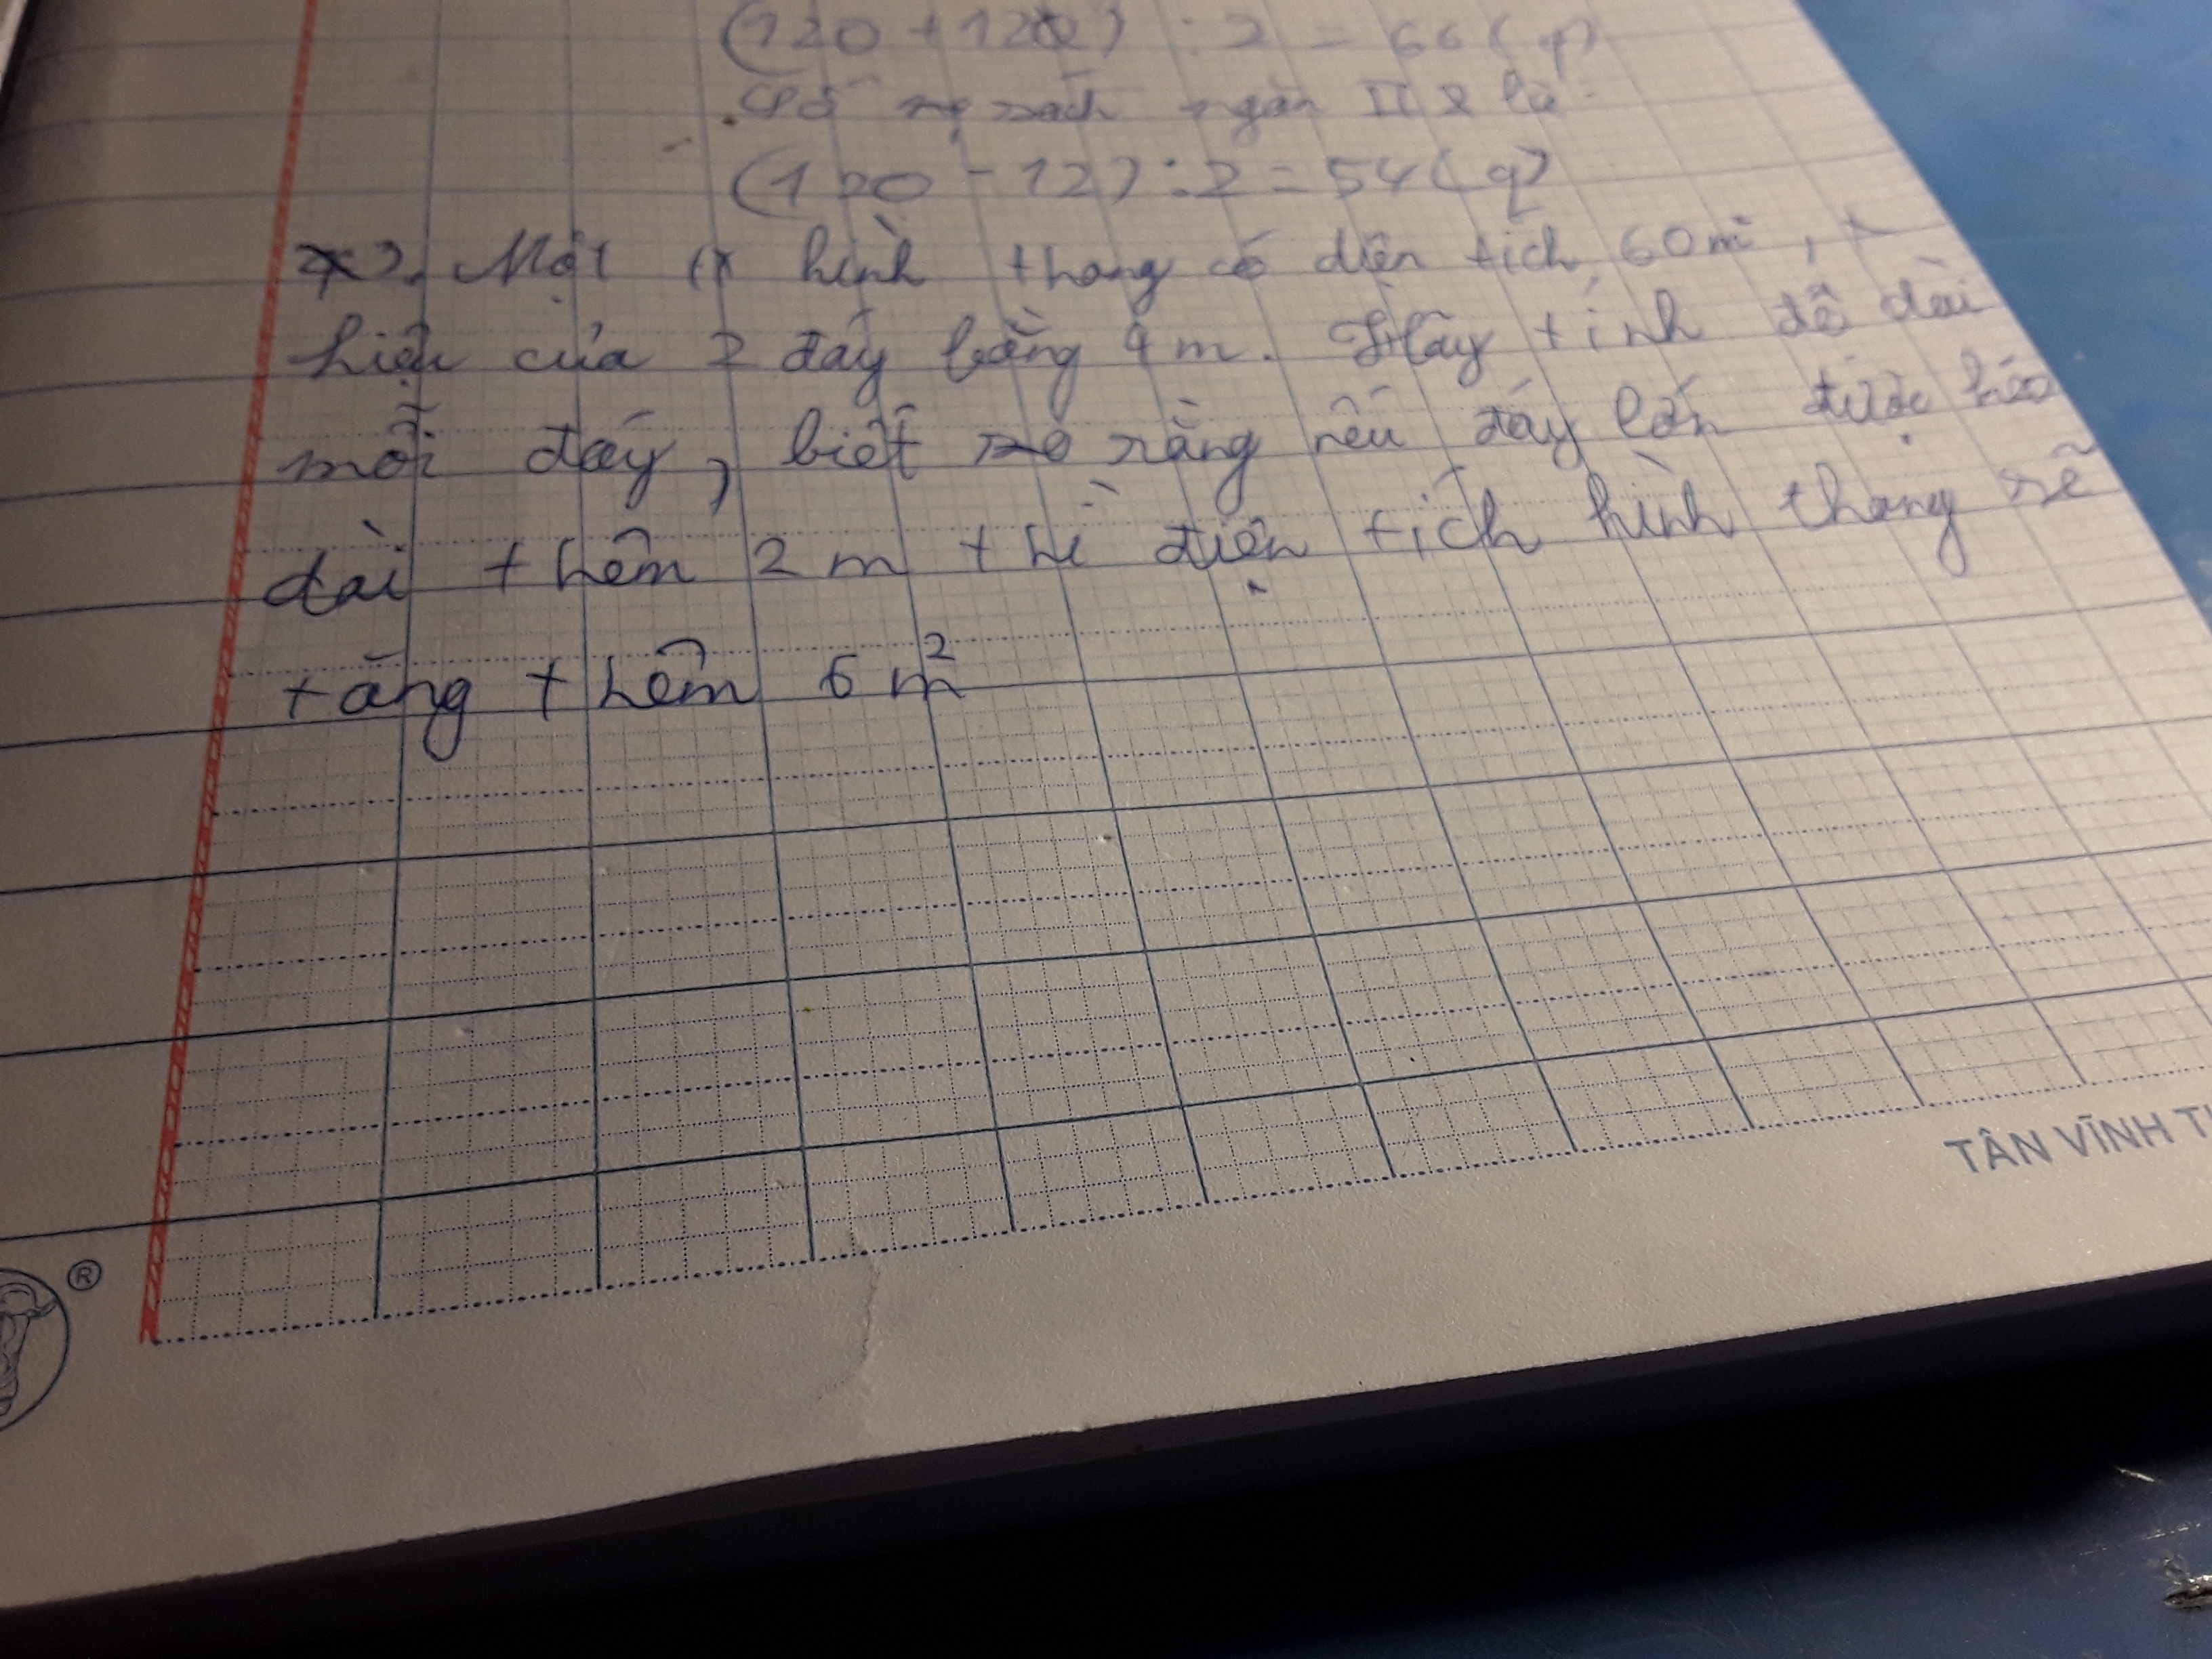 (120 + 12) : 2 = 66 (q)
Số sách ngăn II là:
(120 - 12) : 2 = 54 (q)
3. Một hình thang có diện tích 60m²,
hiệu của 2 đáy bằng 4m. Hãy tính độ dài
mỗi đáy, biết rằng nếu đáy lớn được kéo
dài thêm 2m thì diện tích hình thang sẽ
tăng thêm 6m²
®
TÂN VĨNH